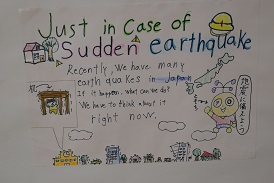 Just in Case of
Sudden earthquake
Recently, We have many
earth quakes in Japan
If it happens, what can we do?
We have to think about it
right now.
地震に備えよう